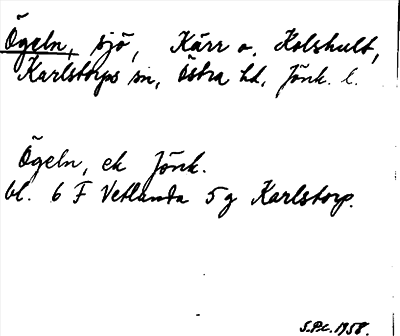 Ögeln, sjö, Kärr o. Holshult,
Karlstorps sn, Östra hd, Jönk. l.
Ögeln, ek Jönk.
bl. 6 F Vetlanda 5 g Karlstorp.
S.P.C. 1958.